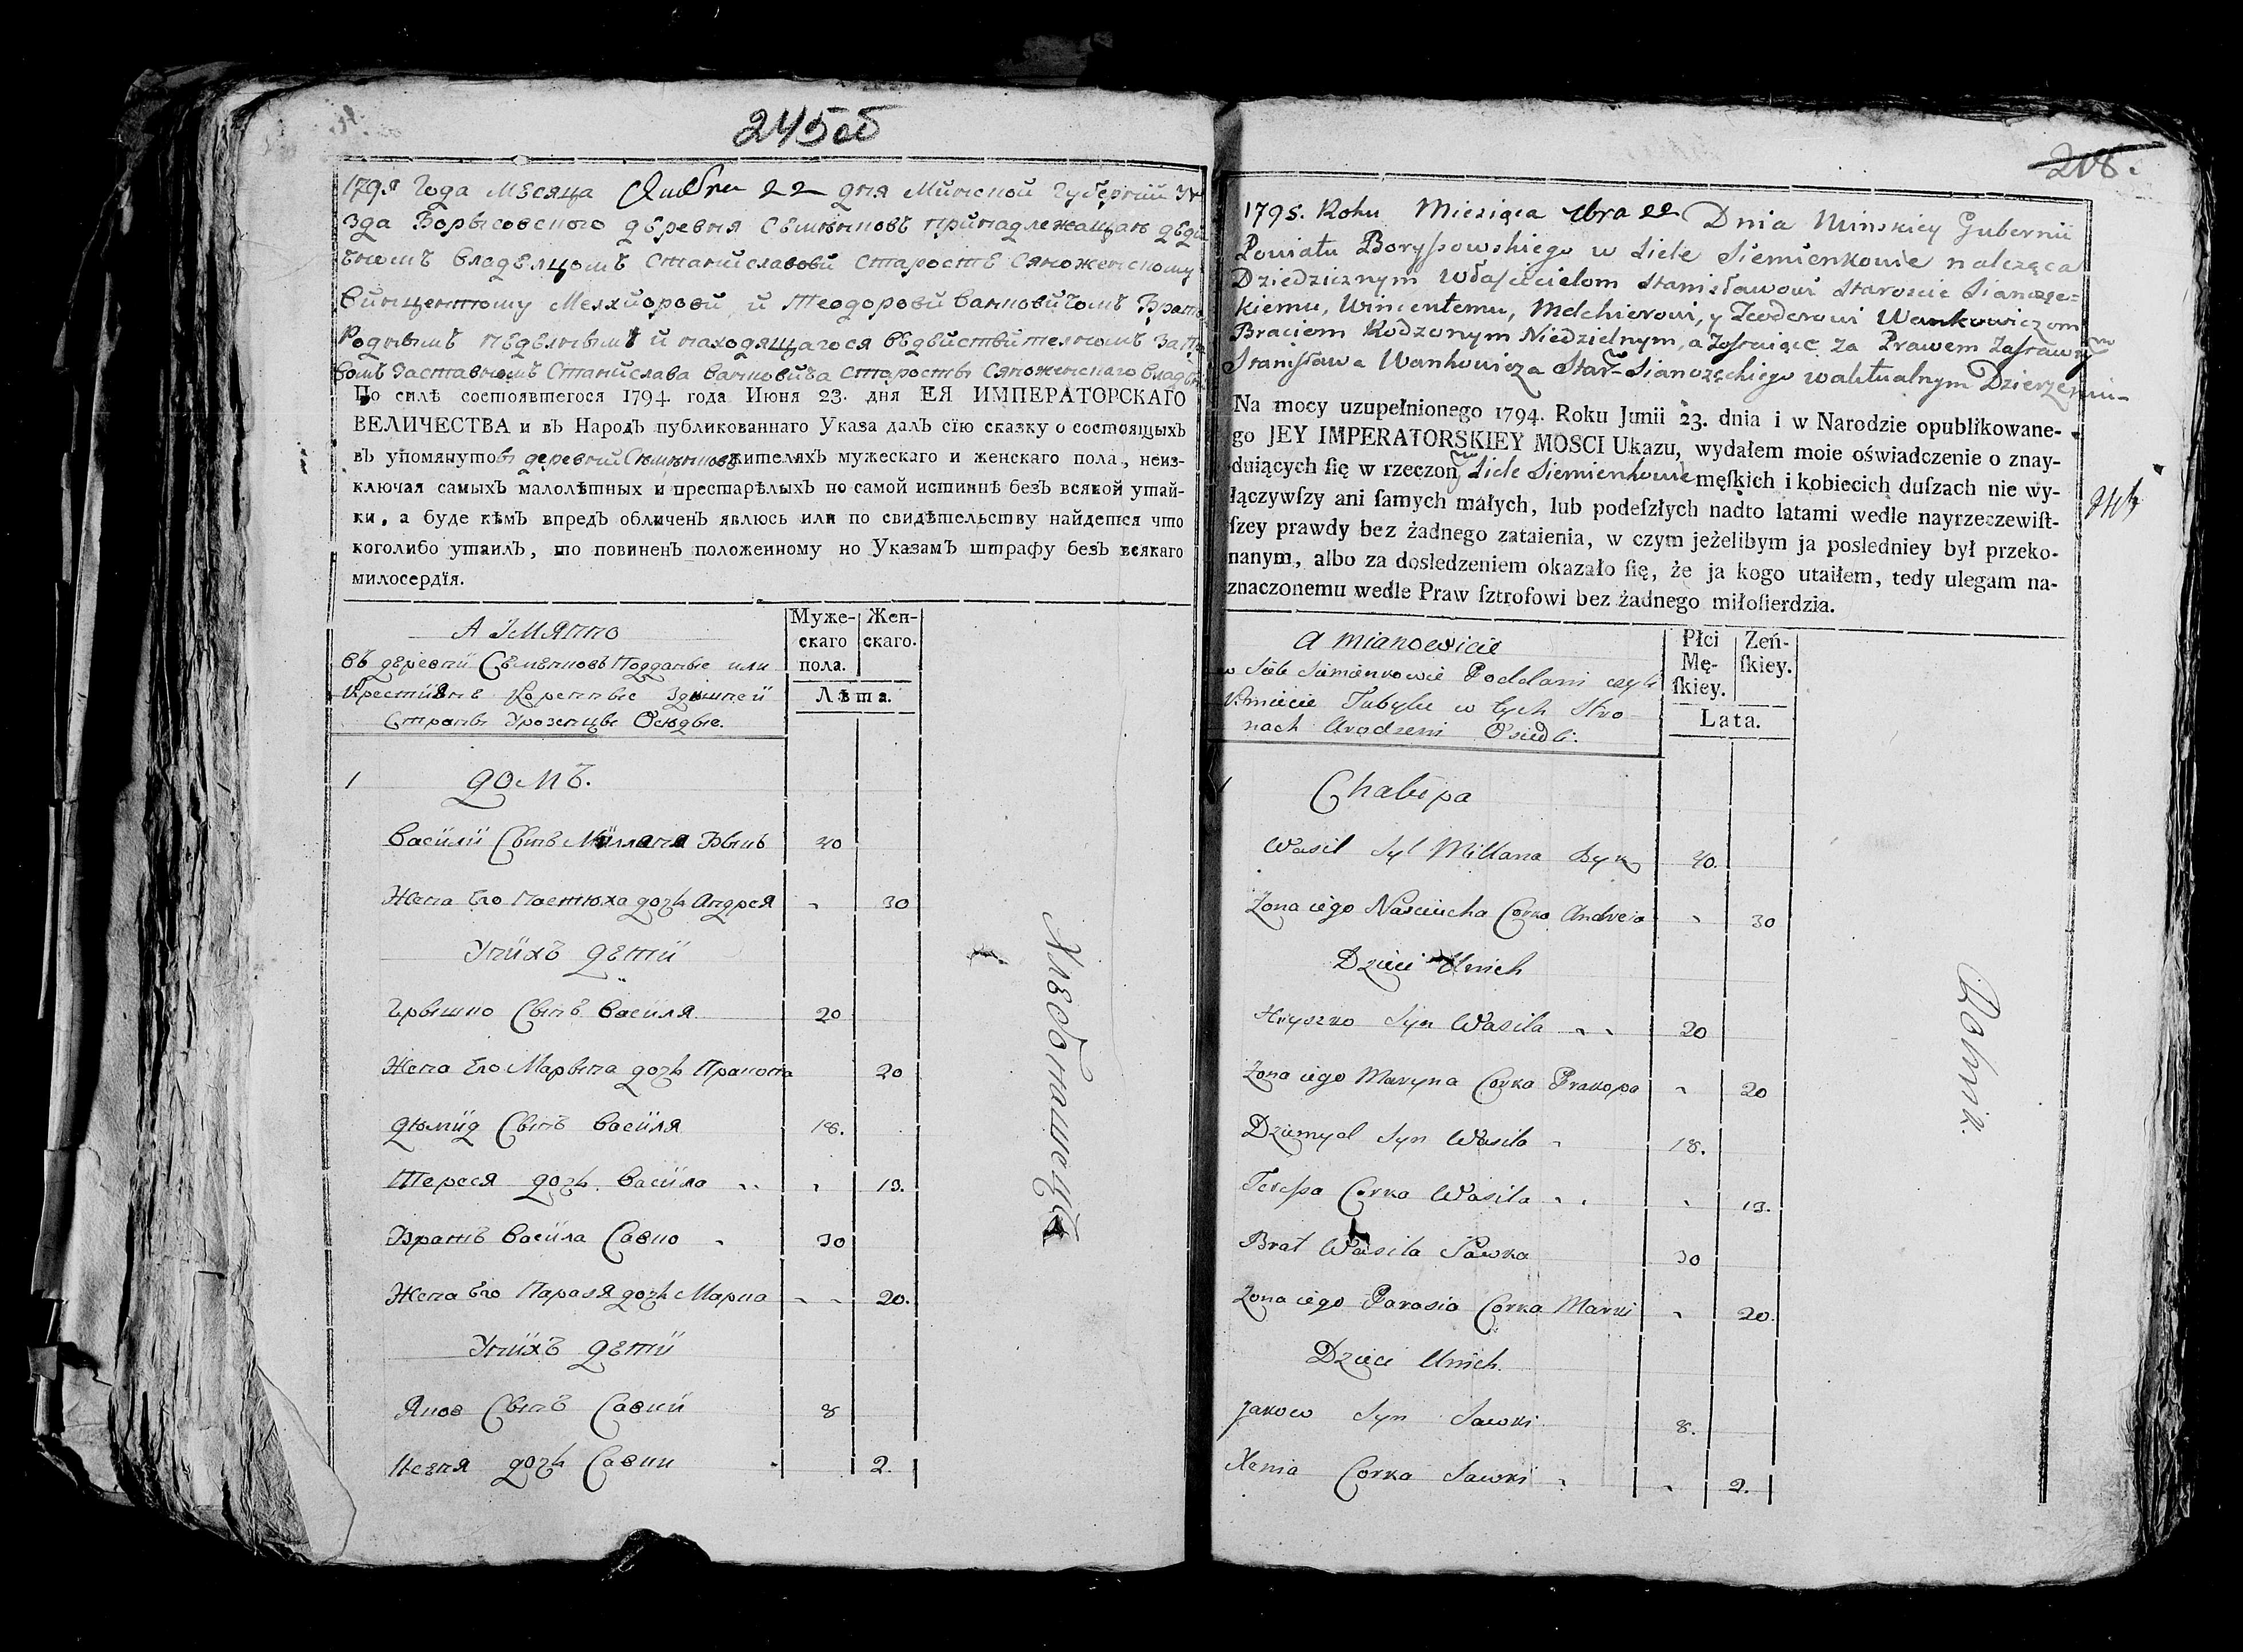 245об
1795 Года Месяца 22 дня Минской Губерний
зда Борысовского деревня Семѣнковъ принадлежащая
Владелцомъ Станиславови Старосте Сяноженскому
Винцентому Мелхиорови, и Теодорови Ванковичомъ
Роднымъ неделнымъ и находящагося вдействителномъ
Заставномъ Станислава Ванковича Старосты Сяноженскаго
По силѣ состоявшегося 1794 года Июня 23. дня ЕЯ ИМПЕРАТОРСКАГО
ВЕЛИЧЕСТВА и въ Народъ публикованнаго Указа далъ сїю сказку о состоящыхъ
въ упомянутой деревни Семѣнковъ жителяхъ мужескаго и женскаго пола, неиз-
ключая самыхъ малолѣтныхъ и престарѣлыхъ по самой истиннѣ безъ всякой утай-
ки, а буде кѣмъ впредъ обличенъ явлюсь или по свидѣтельству найдется что
коголибо утаилъ, то повиненъ положенному по Указамъ штрафу безъ всякаго
милосердїя.
А Імянно
въ деревни Семенковъ Подданые или
Крестияне Коренные Здѣшней
Страны Уроженцы Оседлые.
Муже-
скаго
пола.
Жен-
скаго.
Лѣта.
1 домъ.
Василий Сынъ Миллана Быкъ 40
Жена Его Настюха дочь Андрея 30
Унихъ дети
Грышко Сынъ Василя 20
Жена Его Марына дочь Пракопа 20
Дюмид Сынъ Василя 18.
Тереся дочь Васила 13.
Братъ Васила Савко 30
Жена Его Парася дочь Марка 20.
Унихъ дети
Яков Сынъ Савки 8
Ксеня дочь Савки 2.
Хлебопашецъ
208.
1795. Roku Miesiąca 22 Dnia Minskiey Gubernii
Powiatu Borysowskiego w Siele Siemienkowie należąca
Dziedzicznym Włascicielom Stanisławowi Staroscie Sianoże=
kiemu, Wincentemu, Melchierowi, y Teodorowi Wankowiczom
Braciom Rodzonym Niedzielnym, a zostaiące za Prawem Zastawnym
Stanisława Wankowicza Star: Sianożęckiego w aktualnym Dzierżeniu
Na mocy uzupełnionego 1794. Roku Junii 23. dnia i w Narodzie opublikowane-
go JEY IMPERATORSKIEY MOSCI Ukazu, wydałem moie oświadczenie o znay-
duiących ſię w rzeczonym Siele Siemienkowie męſkich i kobiecich duſzach nie wy-
łączywſzy ani ſamych małych, lub podeſzłych nadto latami wedle nayrzeczewiſt-
ſzey prawdy bez żadnego zataienia, w czym jeżelibym ja posledniey był przeko-
nanym, albo za dosledzeniem okazało ſię, że ja kogo utaiłem, tedy ulegam na-
znaczonemu wedle Praw ſztrofowi bez żadnego miłoſierdzia.
a mianowicie
w Siele Siemienkowie Poddani czyli
Kmiecie Tubylce w tych Stro-
nach Urodzeni Osiedli.
Płci
Mę-
ſkiey.
Zeń-
ſkiey.
Lata.
1 Chałupa
Wasil Syl Millana Byk 40.
Żona iego Nasciucha Corka Andreia 30
Dzieci Unich
Hryszko Syn Wasila 20
Żona iego Maryna Corka Prakopa 20
Dziemyd Syn Wasila 18.
Teressa Corka Wasila 13.
Brat Wasila Sawka 30
Żona iego Parasia Corka Marki 20.
Dzieci Unich.
Jakow Syn Sawki 8.
Xenia Corka Sawki 2.
Rolnik.